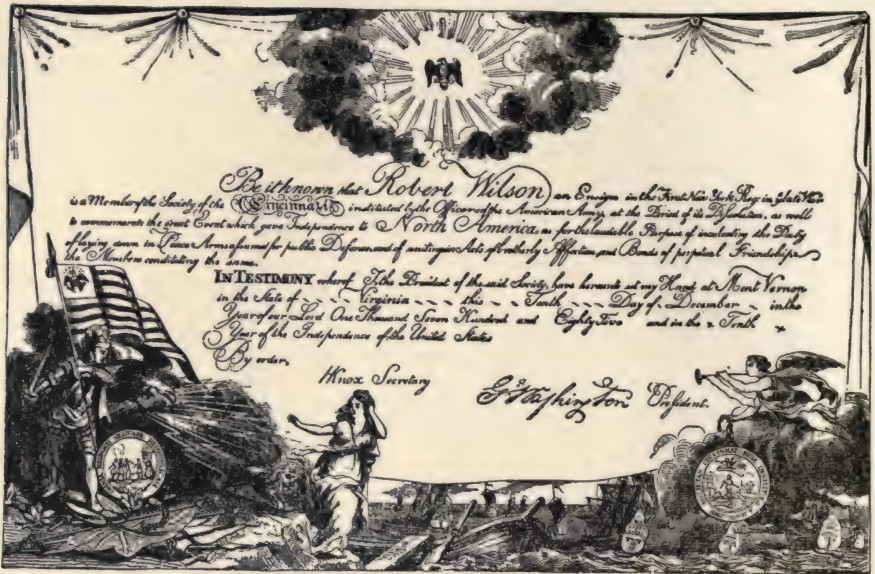 Be it known that Robert Wilson an Ensign in the First New York Reg: in ye late War
is a Member of the Society of the Cincinnati; instituted by the Officers of the American Army, at the Period of its Dissolution, as well
to commemorate the great Event which gave Independence to North America, as for the laudable Purpose of inculcating the Duty
of laying down in Peace Arms assumed for public Defence, and of uniting in Acts of brotherly Affection, and Bonds of perpetual Friendship
the Members constituting the same.
IN TESTIMONY whereof I, the President of the said Society, have hereunto set my Hand at Mount Vernon
in the State of Virginia this Tenth Day of December in the
Year of our Lord One Thousand Seven Hundred and Eighty Five and in the Tenth
Year of the Independence of the United States
By order,
HKnox Secretary
G:Washington President.